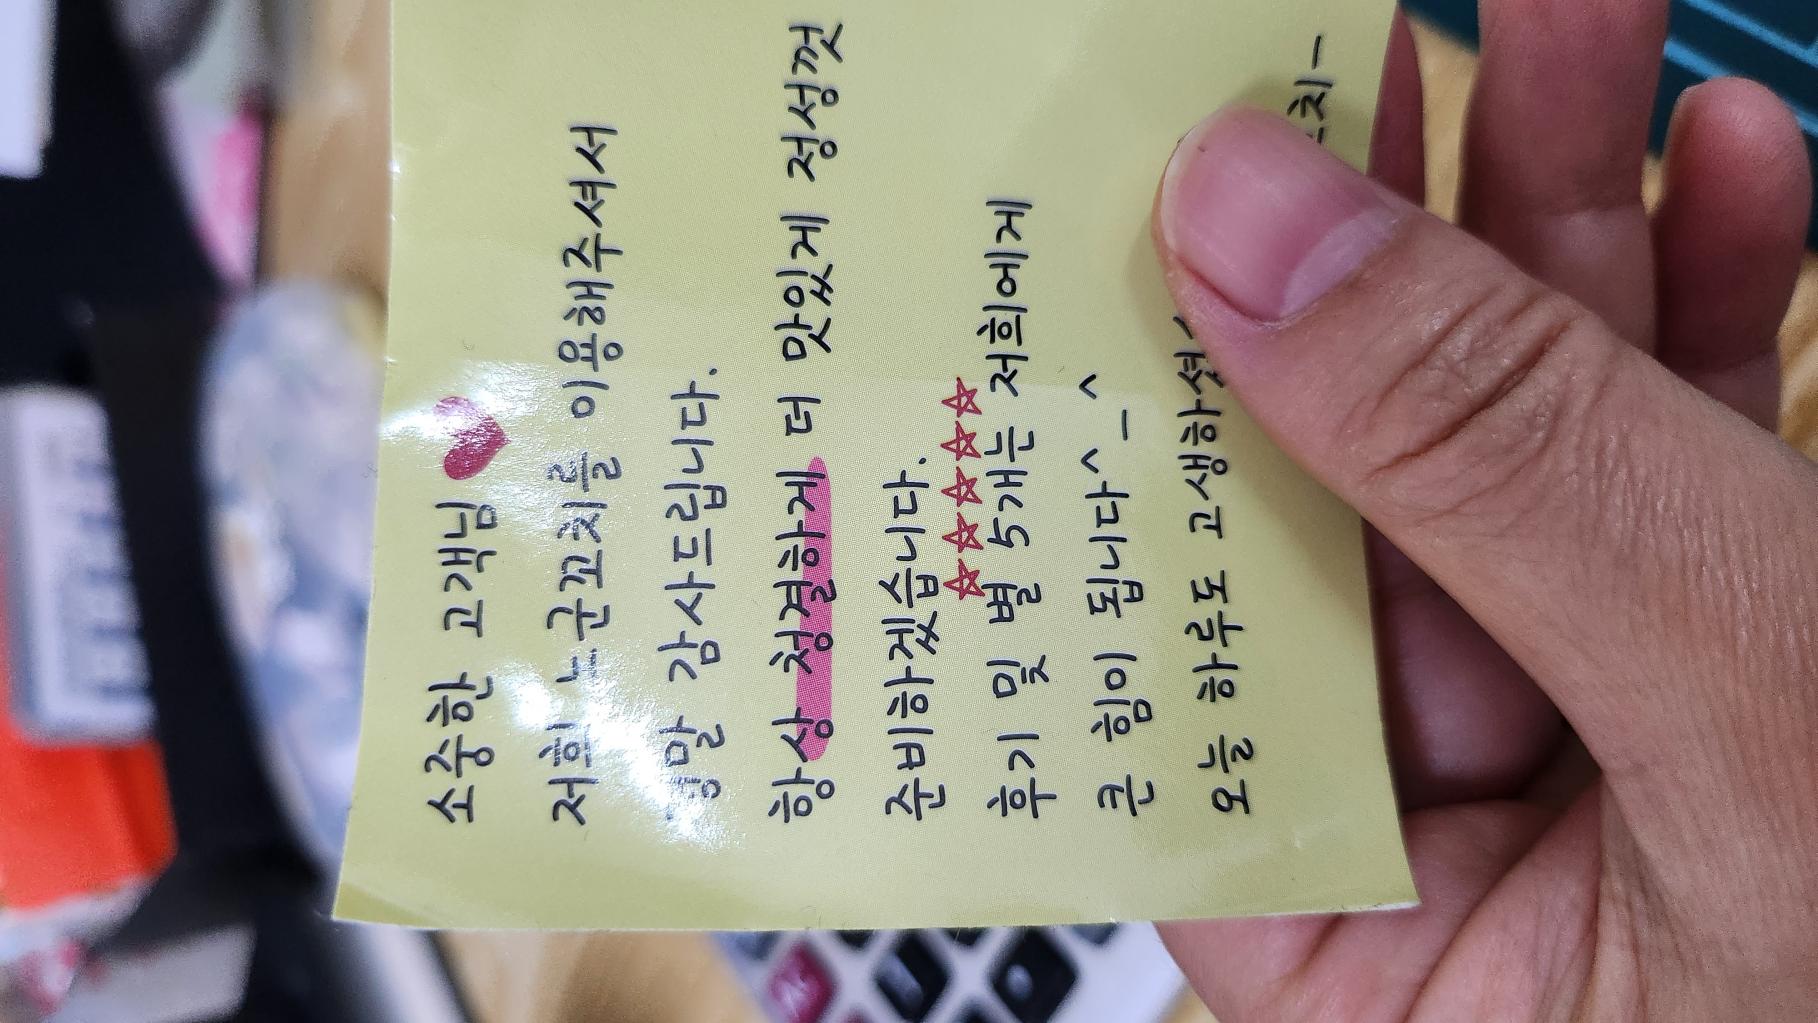 소중한 고객님
저희 노군꼬치를 이용해주셔서
정말 감사드립니다.
항상 청결하게 더 맛있게 정성껏
준비하겠습니다.
☆☆☆☆☆
후기 및 별 5개는 저희에게
큰 힘이 됩니다^_^
오늘 하루도 고생하셨